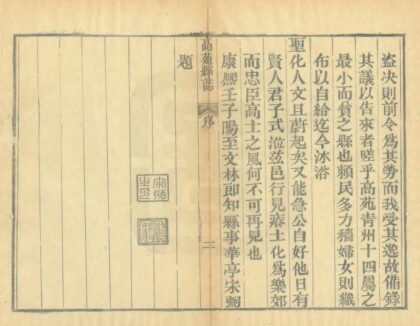 盜決則前令為其勞而我受其逸故備錄
其議以告來者嗟乎高苑青州十四屬之
最小而貧之縣也賴民多力穡婦女則織
布以自給迄今沐浴
聖化人文且蔚起矣又能急公自好他日有
賢人君子式涖茲邑行見瘠土化為樂郊
而忠臣高士之風何不可再見也
康熙壬子陽至文林郎知縣事華亭宋弼
題
高苑縣誌
序
二